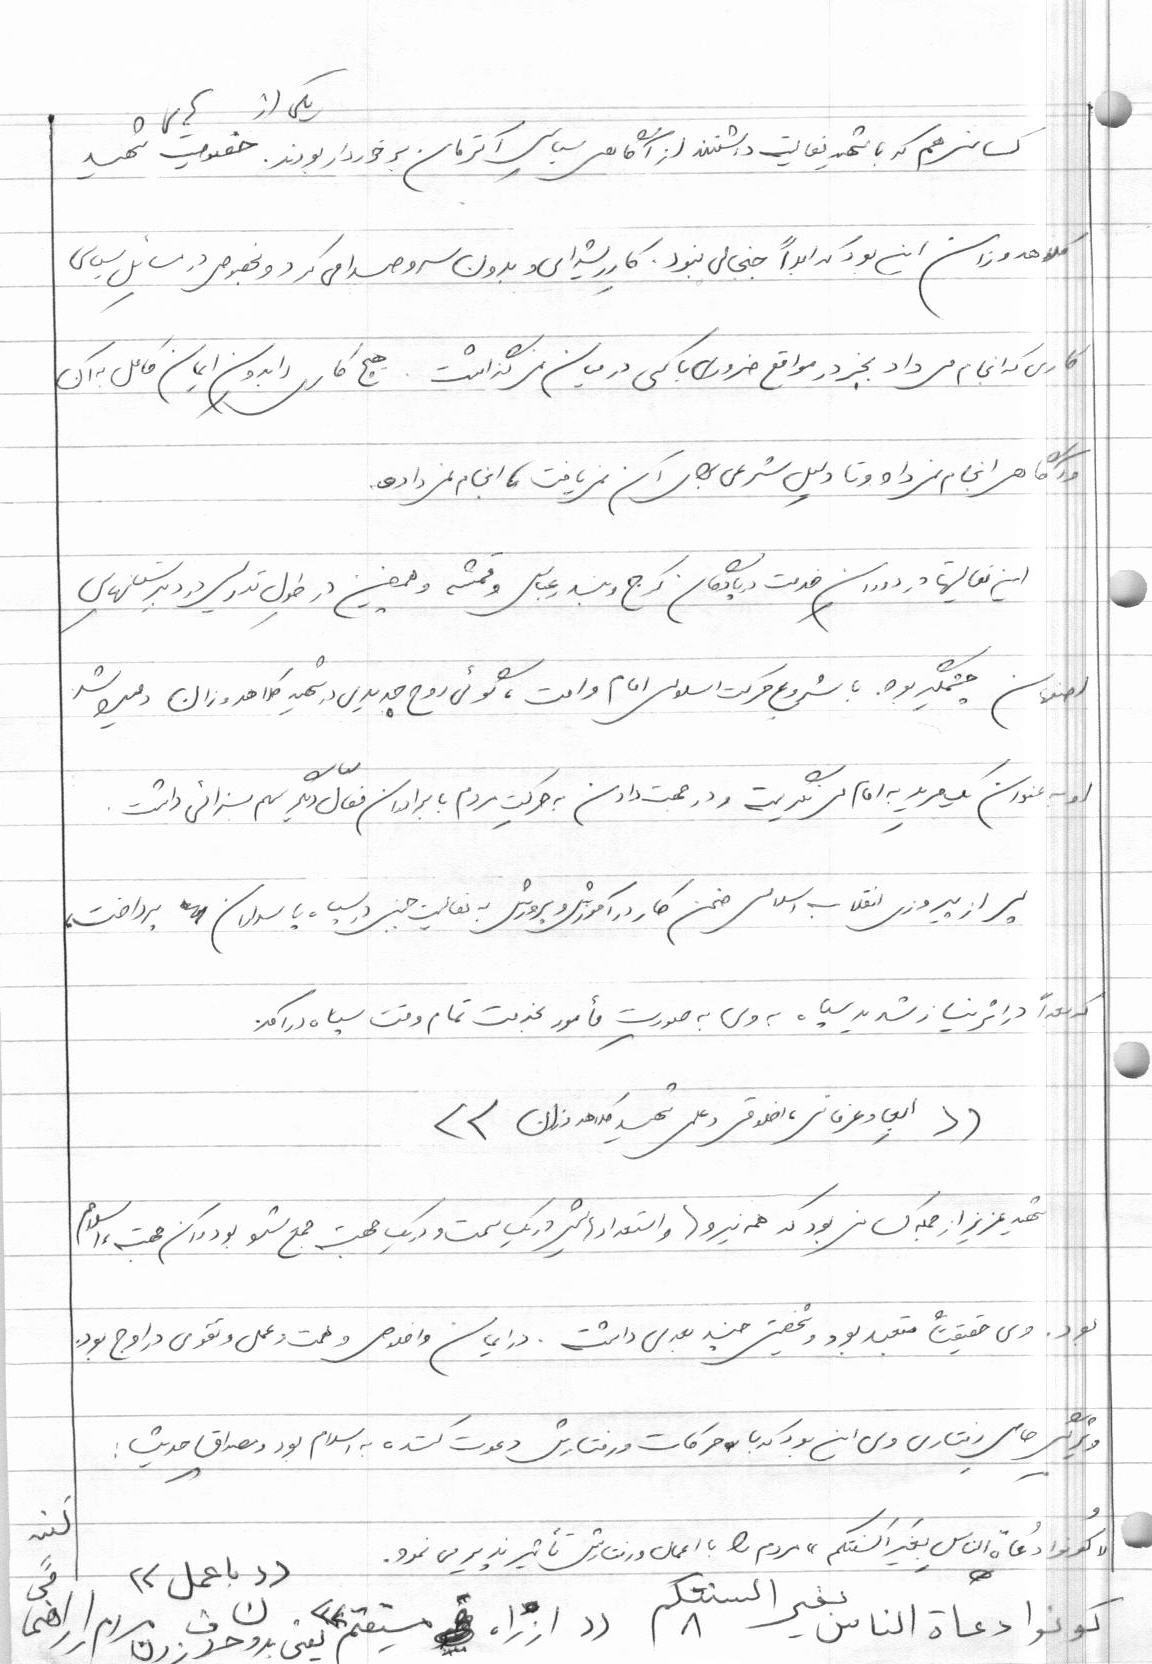 یکی از های
کسانی هم که با شهید فعالیت داشتند از آگاهی سیاسی آنزمان برخوردار بودند. خصوصیت شهید
کلاهدوزان این بود که ابداً جنجالی نبود. کار ریشه‌ای و بدون سر و صدا می کرد و بخصوص در مسائل سیاسی
کاری که انجام می داد بجز در مواقع ضروری با کسی در میان نمی گذاشت. هیچ کاری را بدون ایمان کامل به آن
و آگاهی انجام نمی داد و تا دلیل شرعی برای آن نمی یافت، انجام نمی داد.
این فعالیتها در دوران خدمت در پادگان کرج و بندرعباس و قمشه و همچنین در طول تدریس در دبیرستانهای
اصفهان چشمگیر بود. با شروع حرکت اسلامی امام و امت، گوئی روح جدیدی در شهید کلاهدوزان دمیده شد
او به عنوان یک مرید به امام می نگریست و در جهت دادن به حرکت مردم با برادران فعال دیگر سهم بسزائی داشت.
پس از پیروزی انقلاب اسلامی ضمن کار در آموزش و پرورش به فعالیت جنبی در سپاه پاسداران پرداخت،
که بعداً در اثر نیاز شدید سپاه به وی به صورت مأمور بخدمت تمام وقت سپاه درآمد.
(( ابعاد عرفانی، اخلاقی و علمی شهید کلاهدوزان ))
شهید عزیز از جمله کسانی بود که همه نیروها و استعدادهایش در یک سمت و در یک جهت جمع شده بود و آن جهت، اسلام
بود. وی حقیقتاً متعبد بود و شخصیتی چند بعدی داشت. در ایمان و اخلاص و همت و عمل و تقوی در اوج بود.
ویژگی خاص رفتاری وی این بود که با حرکات و رفتارش دعوت کننده به اسلام بود و مصداق حدیث:
کونوا دُعاة الناس بِغَیرِ اَلسنتکم، مردم را با اعمال و رفتارش تأثیر پذیر می نمود.
(( با عمل ))
کونوا دعاة الناس بغیر السنتکم (( از راه مستقیم )) یعنی بدون حرف زدن مردم را راهنمایی کنند